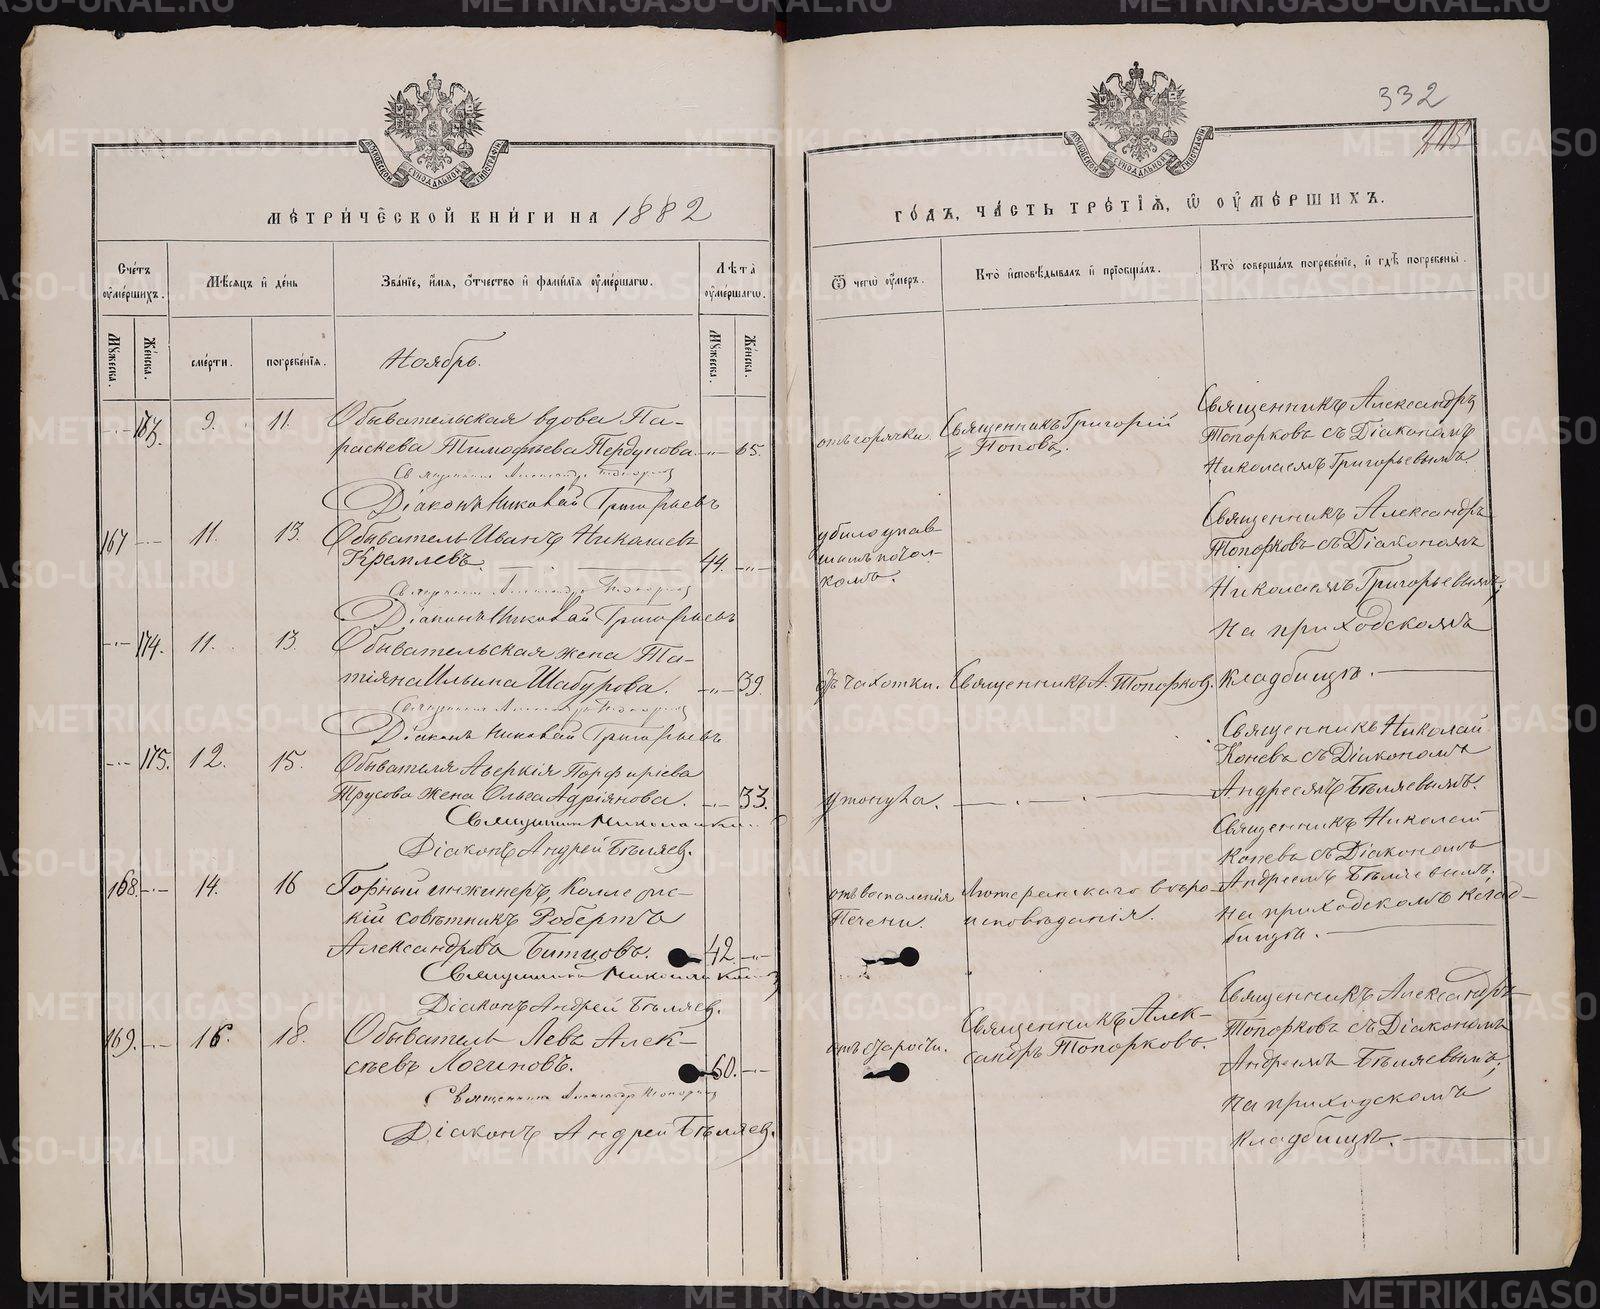 332
445
МОСКОВСКОЙ СѴНОДАЛЬНОЙ ТИПОГРАФІИ
МОСКОВСКОЙ СѴНОДАЛЬНОЙ ТИПОГРАФІИ
МЕТРИЧЕСКОЙ КНИГИ НА 1882
ГОДЪ, ЧАСТЬ ТРЕТІЯ, Ѡ ОУМЕРШИХЪ.
Счетъ оумершихъ.
Мѣсяцъ и день
Званіе, имя, отчество и фамилія оумершагѡ.
Лѣта оумершагѡ.
Ѿ чегѡ оумеръ.
Кто исповѣдывалъ и пріобщалъ.
Кто совершалъ погребеніе, и гдѣ погребены.
Мужеска.
Женска.
смерти.
погребенія.
Мужеска.
Женска.
Ноябрь.
173. 9. 11. Обывательская вдова Па-
раскева Тимофѣева Пердунова 65.
Священникъ Александръ Топорковъ
Діаконъ Николай Григорьевъ
отъ горячки. Священникъ Григорій
Поповъ.
Священникъ Александръ
Топорковъ съ Діакономъ
Николаемъ Григорьевымъ.
167 11. 13. Обыватель Иванъ Николаевъ
Кремлевъ. 44.
Священникъ Александръ Топорковъ
Діаконъ Николай Григорьевъ
убило упав
шимъ потол-
комъ.
Священникъ Александръ
Топорковъ съ Діакономъ
Николаемъ Григорьевымъ;
174. 11. 13. Обывательская жена Та-
тіяна Ильина Шабурова. 39.
Священникъ Александръ Топорковъ
Діаконъ Николай Григорьевъ
отъ чахотки. Священникъ А. Топорковъ.
На приходскомъ
кладбищѣ.
175. 12. 15. Обывателя Аверкія Порфиріева
Трусова жена Ольга Адріянова. 33.
Священникъ Николай Коневъ
Діаконъ Андрей Бѣляевъ.
утонула.
Священникъ Николай
Коневъ съ Діакономъ
Андреемъ Бѣляевымъ.
168. 14. 16 Горный инженеръ, Коллежс-
кій совѣтникъ Робертъ
Александровъ Битновъ. 42
Священникъ Николай Коневъ
Діаконъ Андрей Бѣляевъ.
отъ воспаленія
Печени.
Лютеранскаго вѣро-
исповѣданія.
Священникъ Николай
Коневъ съ Діакономъ
Андреемъ Бѣляевымъ;
на приходскомъ клад-
бищѣ.
169. 16. 18. Обыватель Левъ Алек-
сѣевъ Логиновъ. 60.
Священникъ Александръ Топорковъ
Діаконъ Андрей Бѣляевъ.
отъ старости.
Священникъ Алек-
сандръ Топорковъ.
Священникъ Александръ
Топорковъ съ Діакономъ
Андреемъ Бѣляевымъ;
На приходскомъ
кладбищѣ.
METRIKI.GASO-URAL.RU